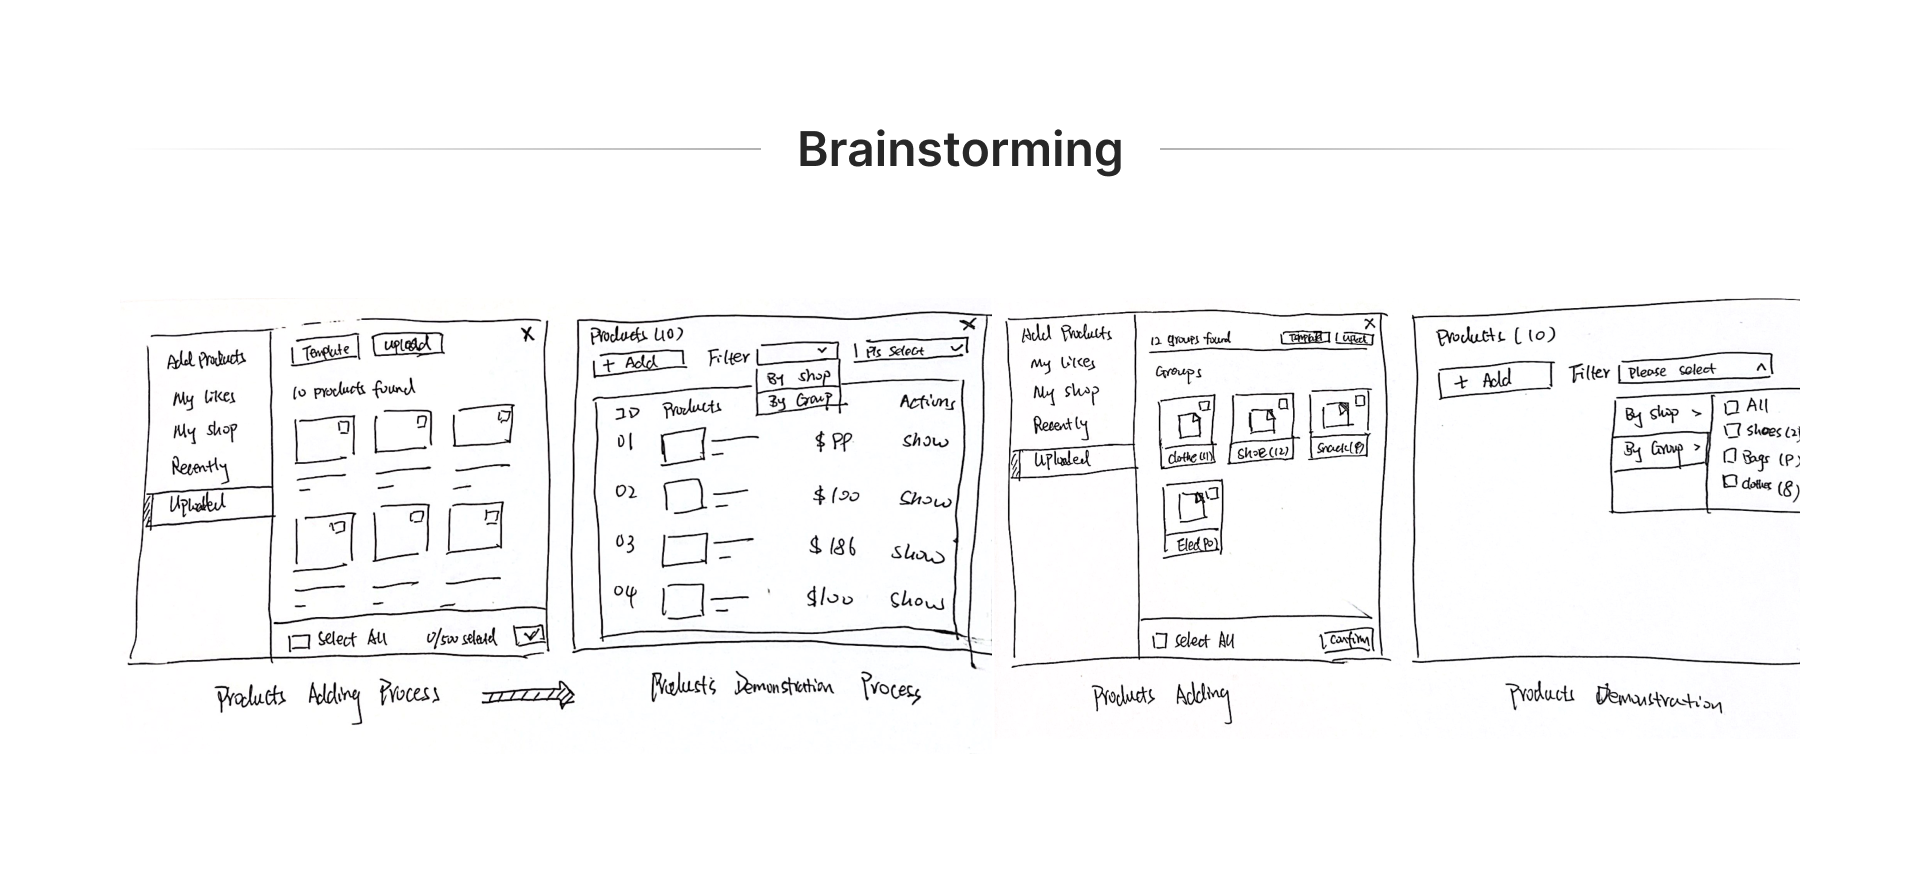 Brainstorming
Add Products
My likes
My shop
Recently
Uploaded
Template
upload
X
10 products found
Select All
0/500 selectd
Products Adding Process
Products (10)
X
+ Add
Filter
Pls Select
By shop
By Group
ID
Products
Actions
01
$ PP
show
02
$ 100
show
03
$ 186
show
04
$100
show
Products Demonstration Process
Add Products
My likes
My shop
Recently
Uploaded
X
12 groups found
Template
Groups
clothe(11)
shoe(12)
snack(8)
Select All
Confirm
Products Adding
Products (10)
+ Add
Filter
Please select
By shop >
By Group >
All
shoes(2)
Bags (P)
clothes (8)
Products Demonstration